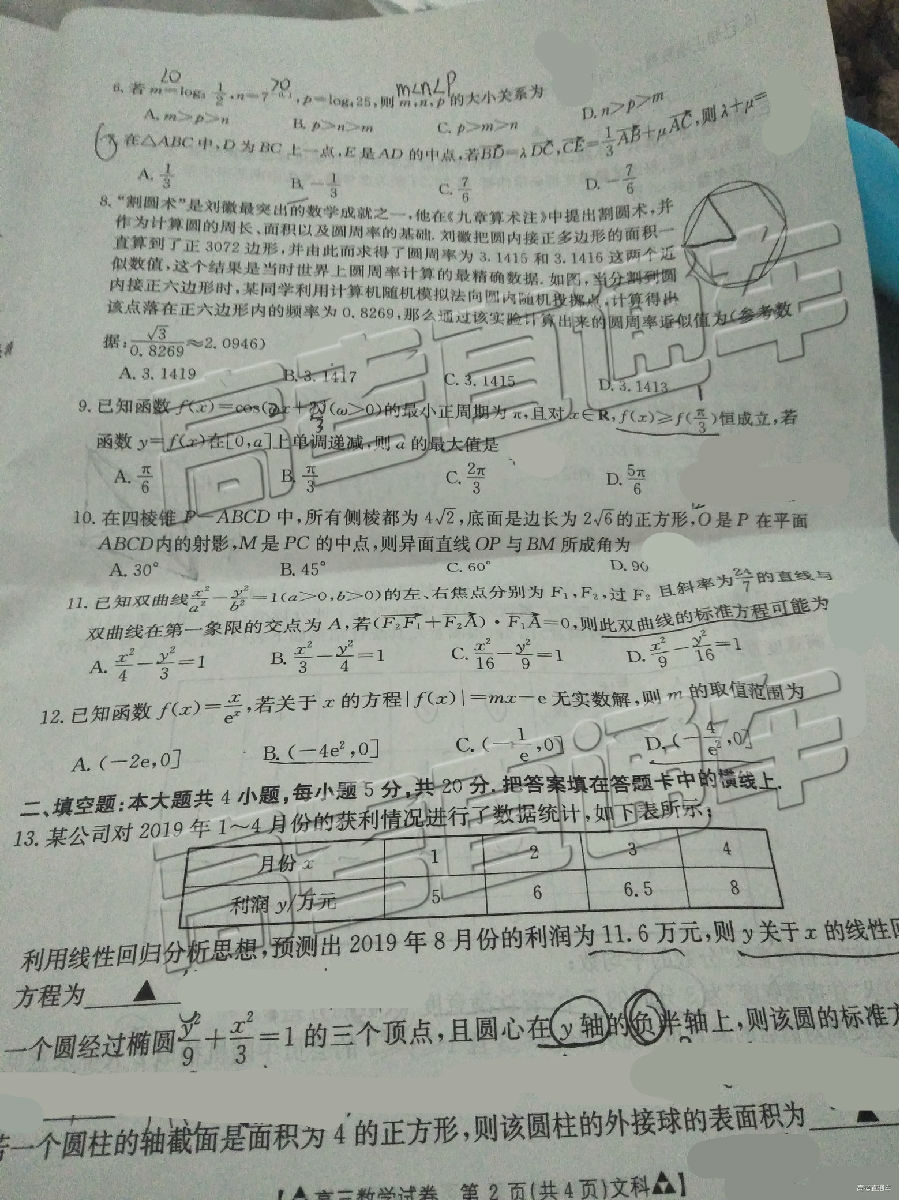 6. 若 m=log₃ 1/2, n=7^0.1, p=log₄25, 则 m,n,p 的大小关系为
A. m>p>n B. p>n>m C. p>m>n D. n>p>m
在△ABC 中, D 为 BC 上一点, E 是 AD 的中点, 若BD=λDC, CE=1/3 AB+μAC, 则 λ+μ=
A. 1/3 B. -1/3 C. 7/6 D. -7/6
8. “割圆术”是刘徽最突出的数学成就之一, 他在《九章算术注》中提出割圆术, 并
作为计算圆的周长、面积以及圆周率的基础. 刘徽把圆内接正多边形的面积一
直算到了正 3072 边形, 并由此而求得了圆周率为 3.1415 和 3.1416 这两个近
似数值, 这个结果是当时世界上圆周率计算的最精确数据. 如图, 当分割到圆
内接正六边形时, 某同学利用计算机随机模拟法向圆内随机投掷点, 计算得出
该点落在正六边形内的频率为 0.8269, 那么通过该实验计算出来的圆周率近似值为(参考数
据: √3/0.8269≈2.0946)
A. 3.1419 B. 3.1417 C. 3.1415 D. 3.1413
9. 已知函数 f(x)=cos(ωx+2π/3)(ω>0)的最小正周期为 π, 且对 x∈R, f(x)≥f(π/3)恒成立, 若
函数 y=f(x)在[0,a]上单调递减, 则 a 的最大值是
A. π/6 B. π/3 C. 2π/3 D. 5π/6
10. 在四棱锥 P-ABCD 中, 所有侧棱都为 4√2, 底面是边长为 2√6 的正方形, O 是 P 在平面
ABCD内的射影, M 是 PC 的中点, 则异面直线 OP 与 BM 所成角为
A. 30° B. 45° C. 60° D. 90
11. 已知双曲线 x²/a² - y²/b² =1(a>0,b>0)的左、右焦点分别为 F₁, F₂, 过 F₂ 且斜率为 24/7 的直线与
双曲线在第一象限的交点为 A, 若(F₂F₁+F₂A)·F₁A=0, 则此双曲线的标准方程可能为
A. x²/4 - y²/3 =1 B. x²/3 - y²/4 =1 C. x²/16 - y²/9 =1 D. x²/9 - y²/16 =1
12. 已知函数 f(x)= x/eˣ, 若关于 x 的方程|f(x)|=mx-e 无实数解, 则 m 的取值范围为
A. (-2e,0] B. (-4e²,0] C. (-1/e,0] D. (-4/e²,0]
二、填空题:本大题共 4 小题, 每小题 5 分, 共 20 分. 把答案填在答题卡中的横线上.
13. 某公司对 2019 年 1~4 月份的获利情况进行了数据统计, 如下表所示:
月份 x 1 2 3 4
利润 y/万元 5 6 6.5 8
利用线性回归分析思想, 预测出 2019 年 8 月份的利润为 11.6 万元, 则 y 关于 x 的线性回
方程为 ▲
一个圆经过椭圆 y²/9 + x²/3 =1 的三个顶点, 且圆心在 y 轴的负半轴上, 则该圆的标准方
一个圆柱的轴截面是面积为 4 的正方形, 则该圆柱的外接球的表面积为 ▲
【高三数学试卷 第 2 页(共 4 页)文科】